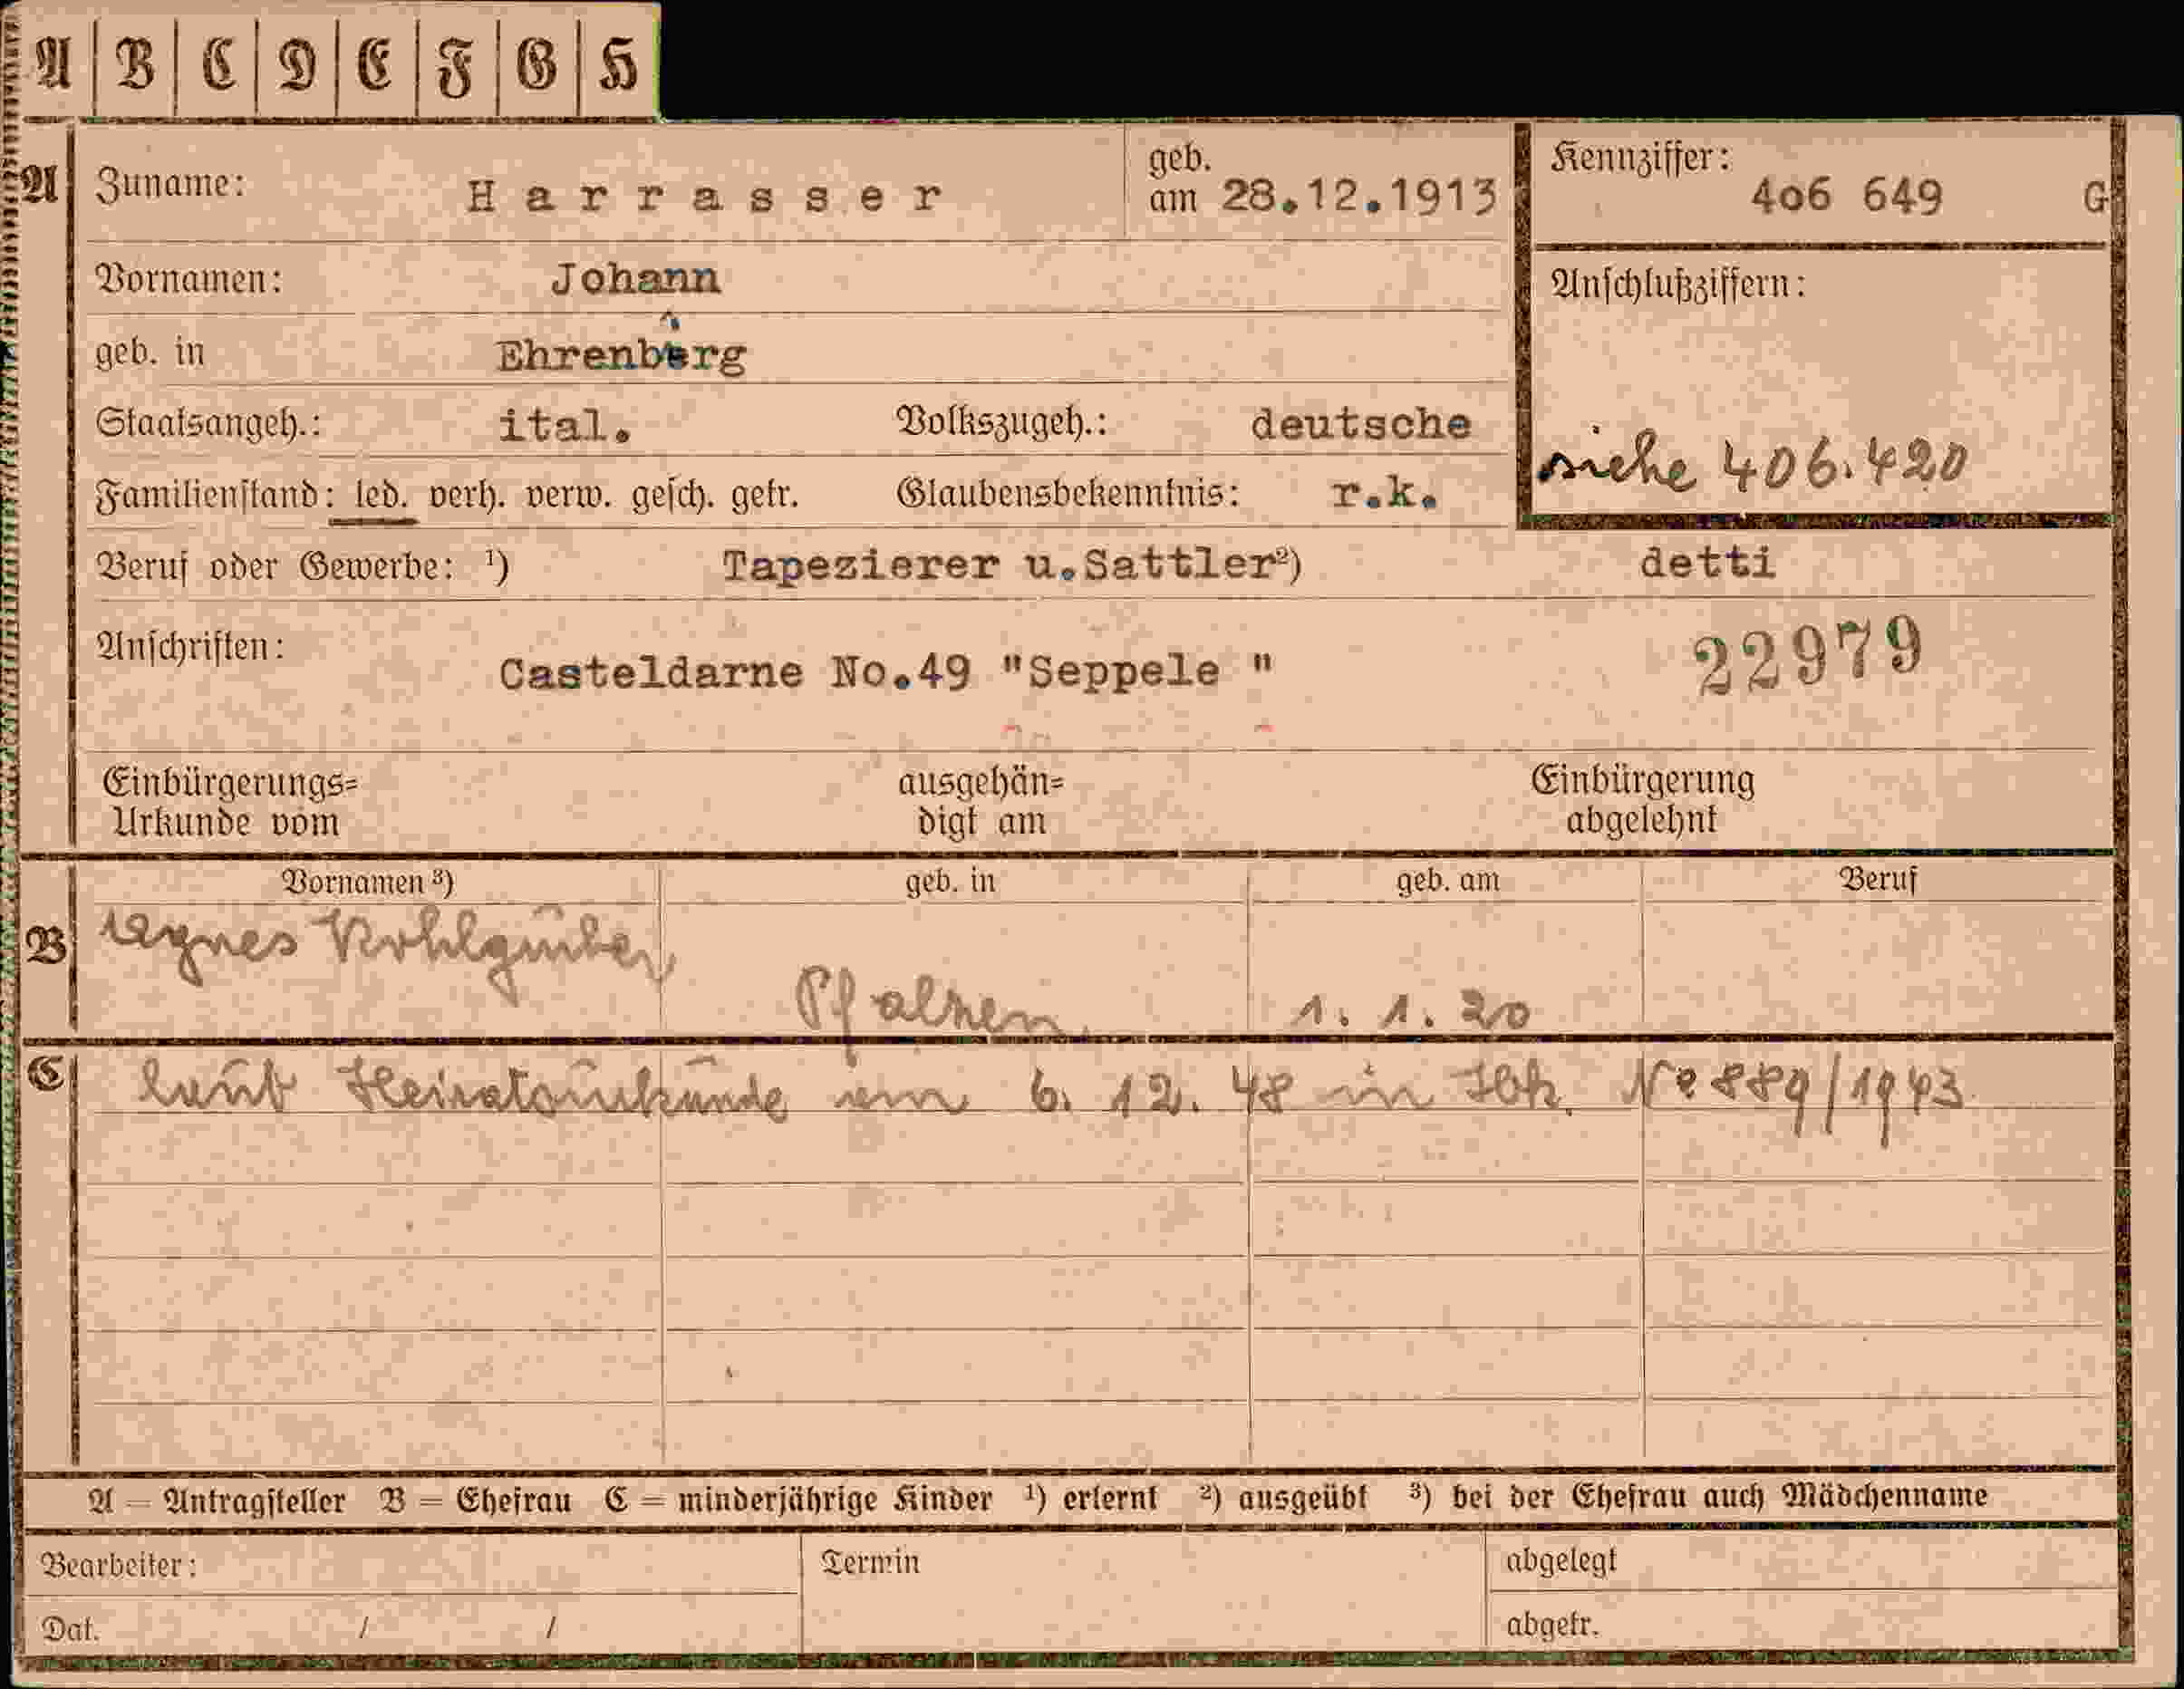 A B C D E F G H
A Zuname: Harrasser geb. am 28.12.1913 Kennziffer: 4o6 649 G
Vornamen: Johann Anschlußziffern:
geb. in Ehrenberg
Staatsangeh.: ital. Volkszugeh.: deutsche
siehe 406.420
Familienstand: led. verh. verw. gesch. getr. Glaubensbekenntnis: r.k.
Beruf oder Gewerbe: ¹) Tapezierer u.Sattler ²) detti
Anschriften: Casteldarne No.49 "Seppele " 22979
Einbürgerungs= ausgehän= Einbürgerung
Urkunde vom digt am abgelehnt
Vornamen ³) geb. in geb. am Beruf
B Agnes Kohlgruber
Pfalzen 1. 1. 20
C laut Heiratsurkunde vom 6. 12. 48 in Ibk. No 889/1943
A = Antragsteller B = Ehefrau C = minderjährige Kinder ¹) erlernt ²) ausgeübt ³) bei der Ehefrau auch Mädchenname
Bearbeiter: Termin abgelegt
Dat. / / abgetr.